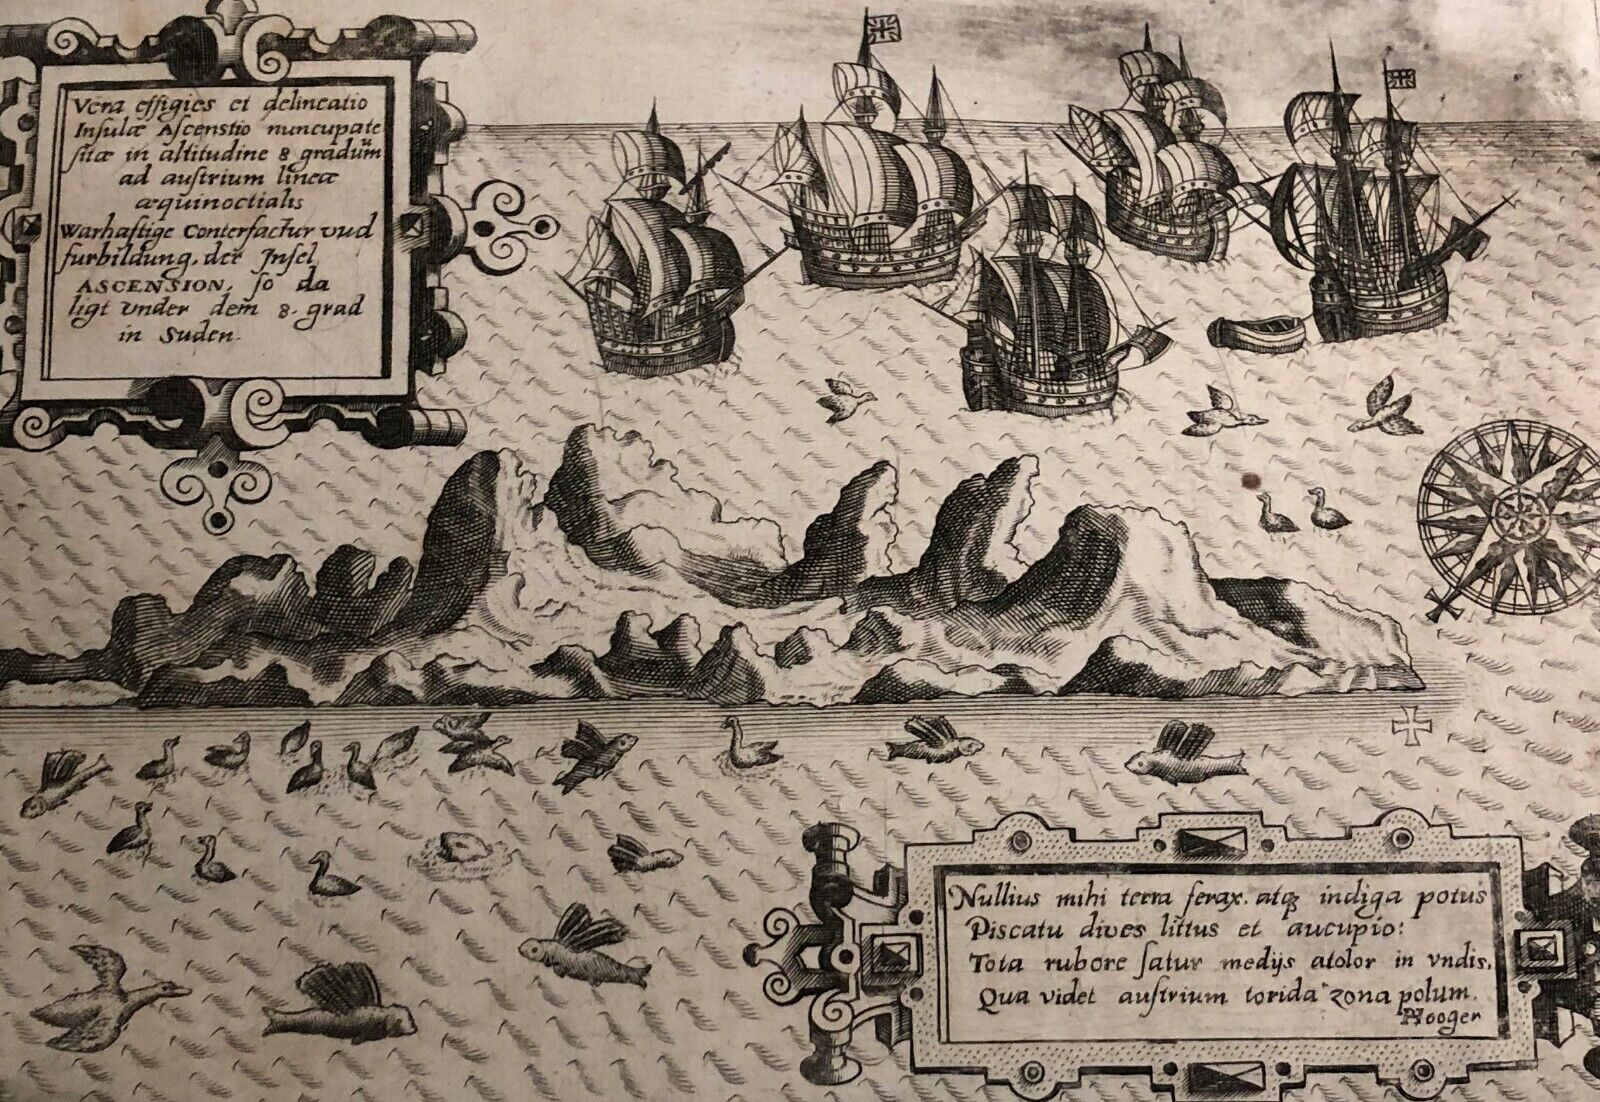 Vera effigies et delineatio
Insulæ Ascenstio nuncupate
sitæ in altitudine 8 gradūm
ad austrium lineæ
æquinoctialis
Warhaftige Conterfactur vnd
furbildung. der Insel
ASCENSION, so da
ligt vnder dem 8. grad
in Suden.
Nullius mihi terra ferax. atqꝫ indiga potus
Piscatu dives littus et aucupio:
Tota rubore satur medijs atolor in vndis.
Qua videt austrium torida zona polum.
Hooger